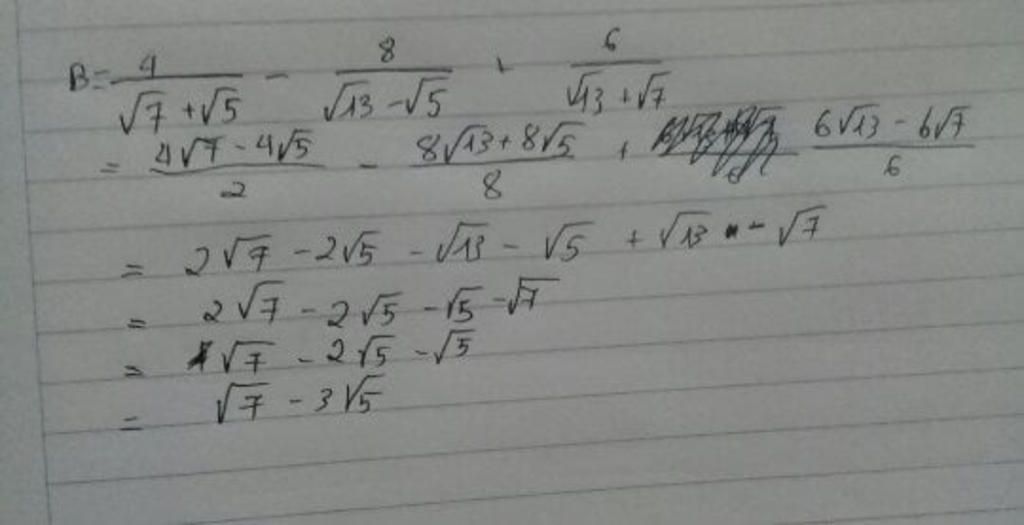 B = 4/(√7 + √5) - 8/(√13 - √5) + 6/(√13 + √7)
= (4√7 - 4√5)/2 - (8√13 + 8√5)/8 + (6√13 - 6√7)/6
= 2√7 - 2√5 - √13 - √5 + √13 - √7
= 2√7 - 2√5 - √5 - √7
= 1√7 - 2√5 - √5
= √7 - 3√5